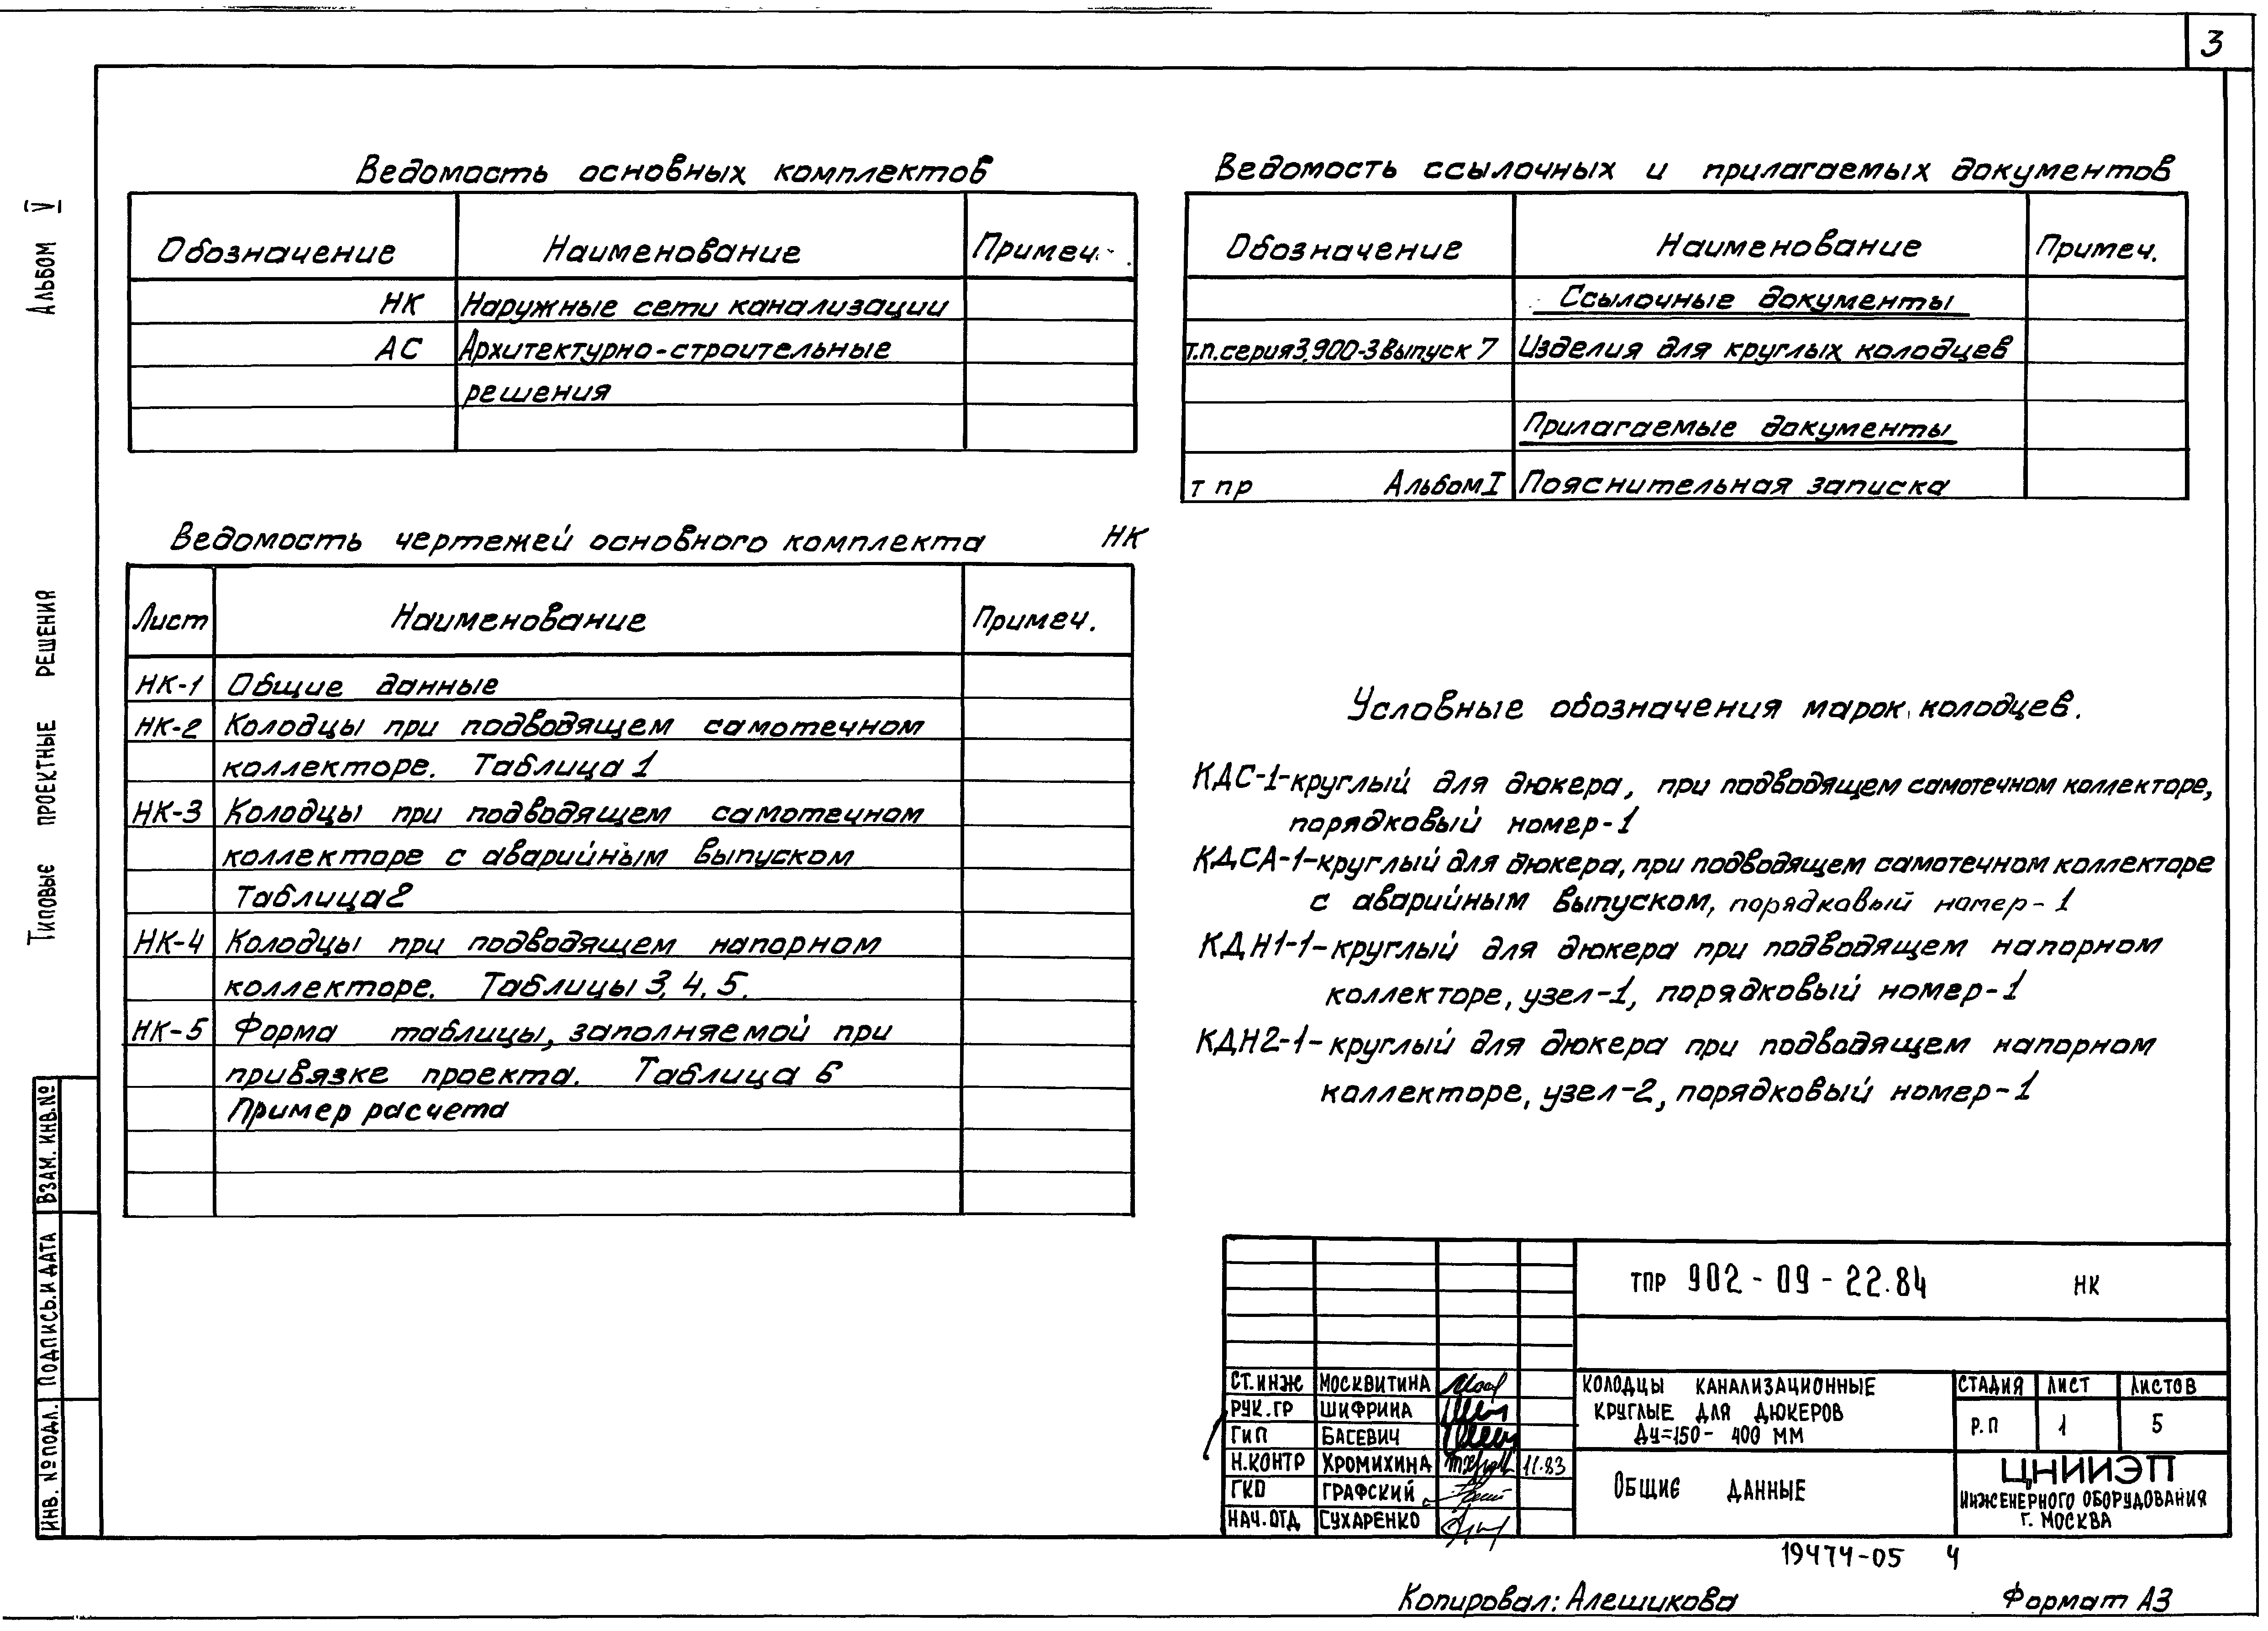 3
Альбом V
Типовые проектные решения
Ведомость основных комплектов
Обозначение Наименование Примеч.
НК Наружные сети канализации
АС Архитектурно-строительные
решения
Ведомость ссылочных и прилагаемых документов
Обозначение Наименование Примеч.
Ссылочные документы
т.п.серия 3.900-3 Выпуск 7 Изделия для круглых колодцев
Прилагаемые документы
т пр Альбом I Пояснительная записка
Ведомость чертежей основного комплекта НК
Лист Наименование Примеч.
НК-1 Общие данные
НК-2 Колодцы при подводящем самотечном
коллекторе. Таблица 1
НК-3 Колодцы при подводящем самотечном
коллекторе с аварийным выпуском
Таблица 2
НК-4 Колодцы при подводящем напорном
коллекторе. Таблицы 3, 4, 5.
НК-5 Форма таблицы, заполняемой при
привязке проекта. Таблица 6
Пример расчета
Условные обозначения марок колодцев.
КДС-1-круглый для дюкера, при подводящем самотечном коллекторе,
порядковый номер-1
КДСА-1-круглый для дюкера, при подводящем самотечном коллекторе
с аварийным выпуском, порядковый номер-1
КДН1-1-круглый для дюкера при подводящем напорном
коллекторе, узел-1, порядковый номер-1
КДН2-1-круглый для дюкера при подводящем напорном
коллекторе, узел-2, порядковый номер-1
ВЗАМ. ИНВ.№
ПОДПИСЬ И ДАТА
ИНВ. № ПОДЛ.
ТПР 902-09-22.84 НК
СТ.ИНЖ МОСКВИТИНА
РУК.ГР ШИФРИНА
ГИП БАСЕВИЧ
Н.КОНТР ХРОМИХИНА 11.83
ГКО ГРАФСКИЙ
НАЧ.ОТД СУХАРЕНКО
КОЛОДЦЫ КАНАЛИЗАЦИОННЫЕ
КРУГЛЫЕ ДЛЯ ДЮКЕРОВ
Ду=150- 400 ММ
СТАДИЯ ЛИСТ ЛИСТОВ
Р.П 1 5
ОБЩИЕ ДАННЫЕ
ЦНИИЭП
ИНЖЕНЕРНОГО ОБОРУДОВАНИЯ
Г. МОСКВА
19474-05 4
Копировал: Алешикова Формат А3